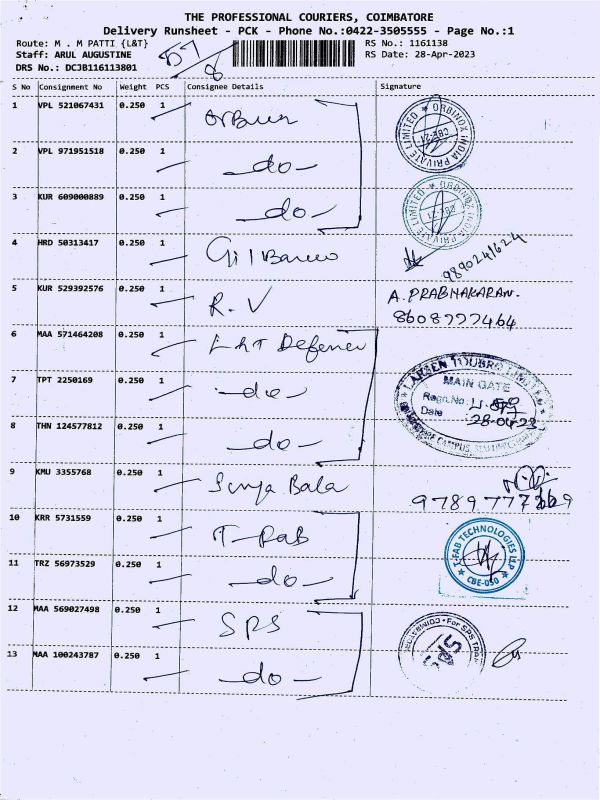 THE PROFESSIONAL COURIERS, COIMBATORE
Delivery Runsheet - PCK - Phone No.:0422-3505555 - Page No.:1
Route: M . M PATTI {L&T}
RS No.: 1161138
Staff: ARUL AUGUSTINE
RS Date: 28-Apr-2023
DRS No.: DCJB116113801
S No Consignment No Weight PCS Consignee Details Signature
1 VPL 521067431 0.250 1
ORBINOX INDIA PRIVATE LIMITED
CBE-21
2 VPL 971951518 0.250 1 -do-
3 KUR 609000889 0.250 1 -do-
ORBINOX INDIA PRIVATE LIMITED
CBE-21
4 HRD 50313417 0.250 1 Gilbarco
9890241624
5 KUR 529392576 0.250 1 R.V A. PRABHAKARAN.
8608777464
6 MAA 571464208 0.250 1 L&T Defence
LARSEN & TOUBRO LIMITED
MAIN GATE
7 TPT 2250169 0.250 1 -do-
Regn.No:
Date 28-04-23
8 THN 124577812 0.250 1 -do-
9 KMU 3355768 0.250 1 Surya Bala
10 KRR 5731559 0.250 1 T-Fab
T-FAB TECHNOLOGIES LLP
CBE-050
11 TRZ 56973529 0.250 1 -do-
12 MAA 569027498 0.250 1 SPS
For SPS
SPS
13 MAA 100243787 0.250 1 -do-